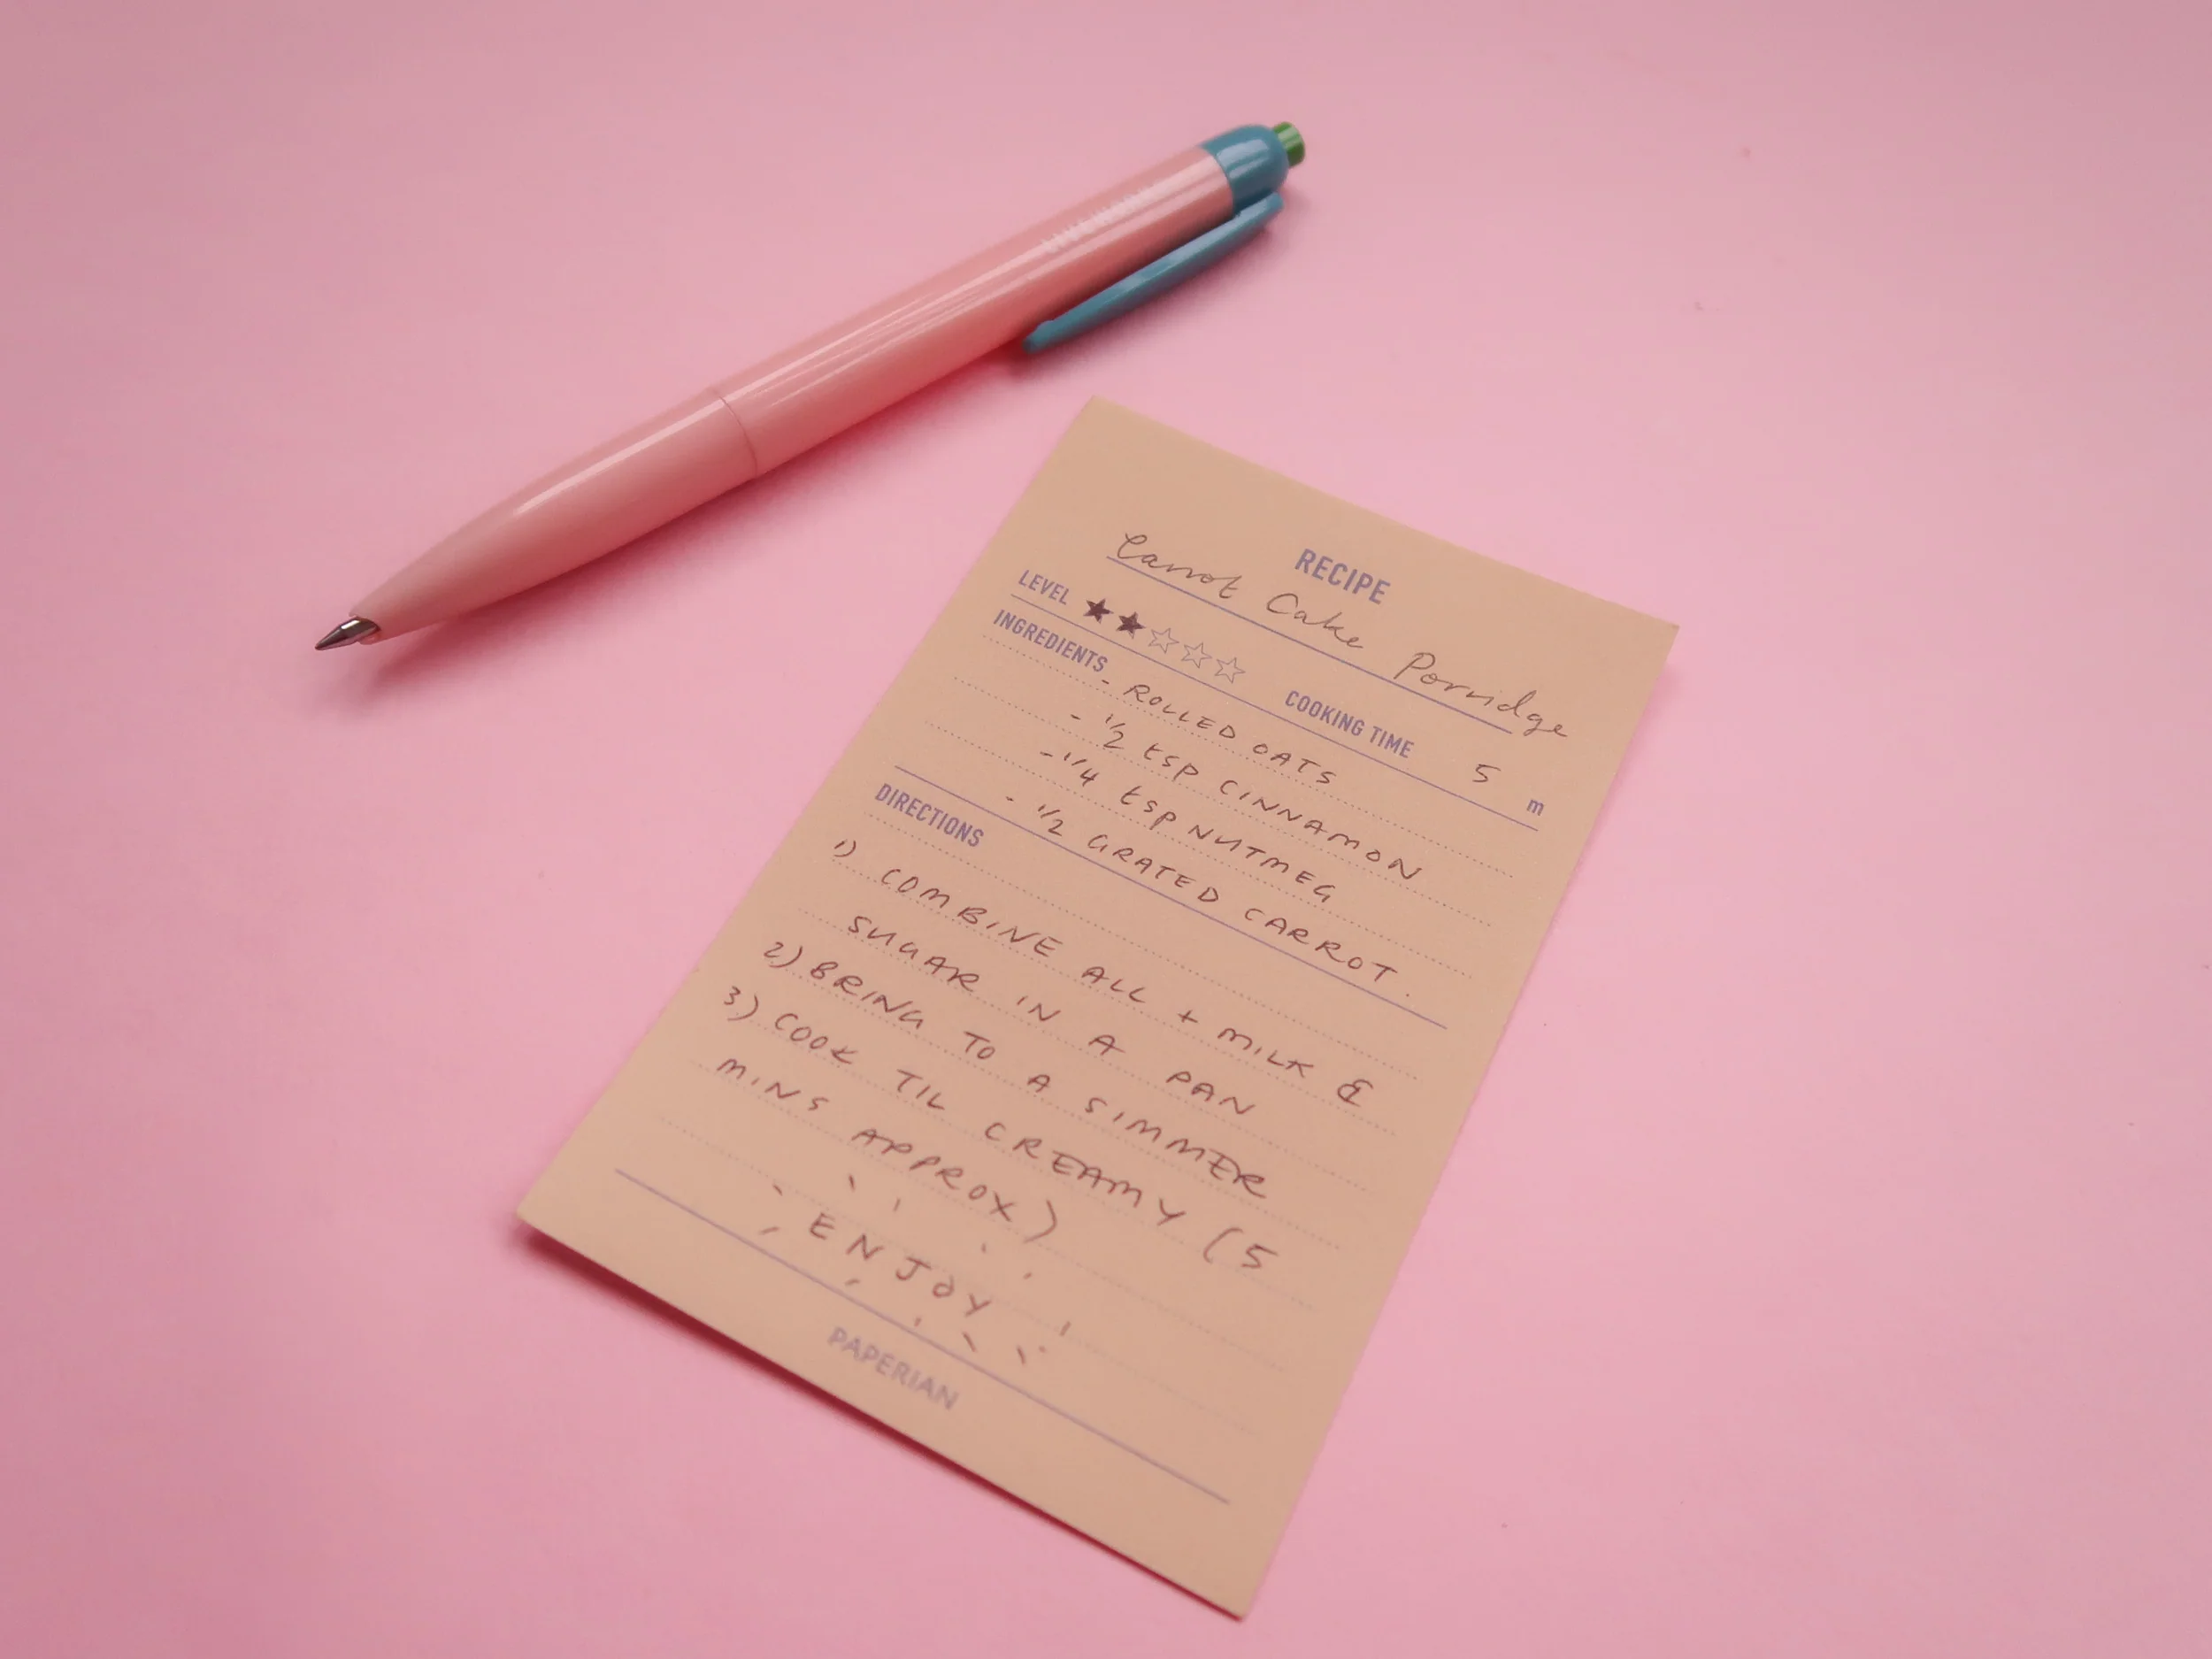 RECIPE
Carrot Cake Porridge
LEVEL ★★☆☆☆ COOKING TIME 5 m
INGREDIENTS
- ROLLED OATS
- 1/2 tsp CINNAMON
- 1/4 tsp NUTMEG
- 1/2 GRATED CARROT.
DIRECTIONS
1) COMBINE ALL + MILK &
SUGAR IN A PAN
2) BRING TO A SIMMER
3) COOK TIL CREAMY (5
MINS APPROX)
ENJOY!
PAPERIAN